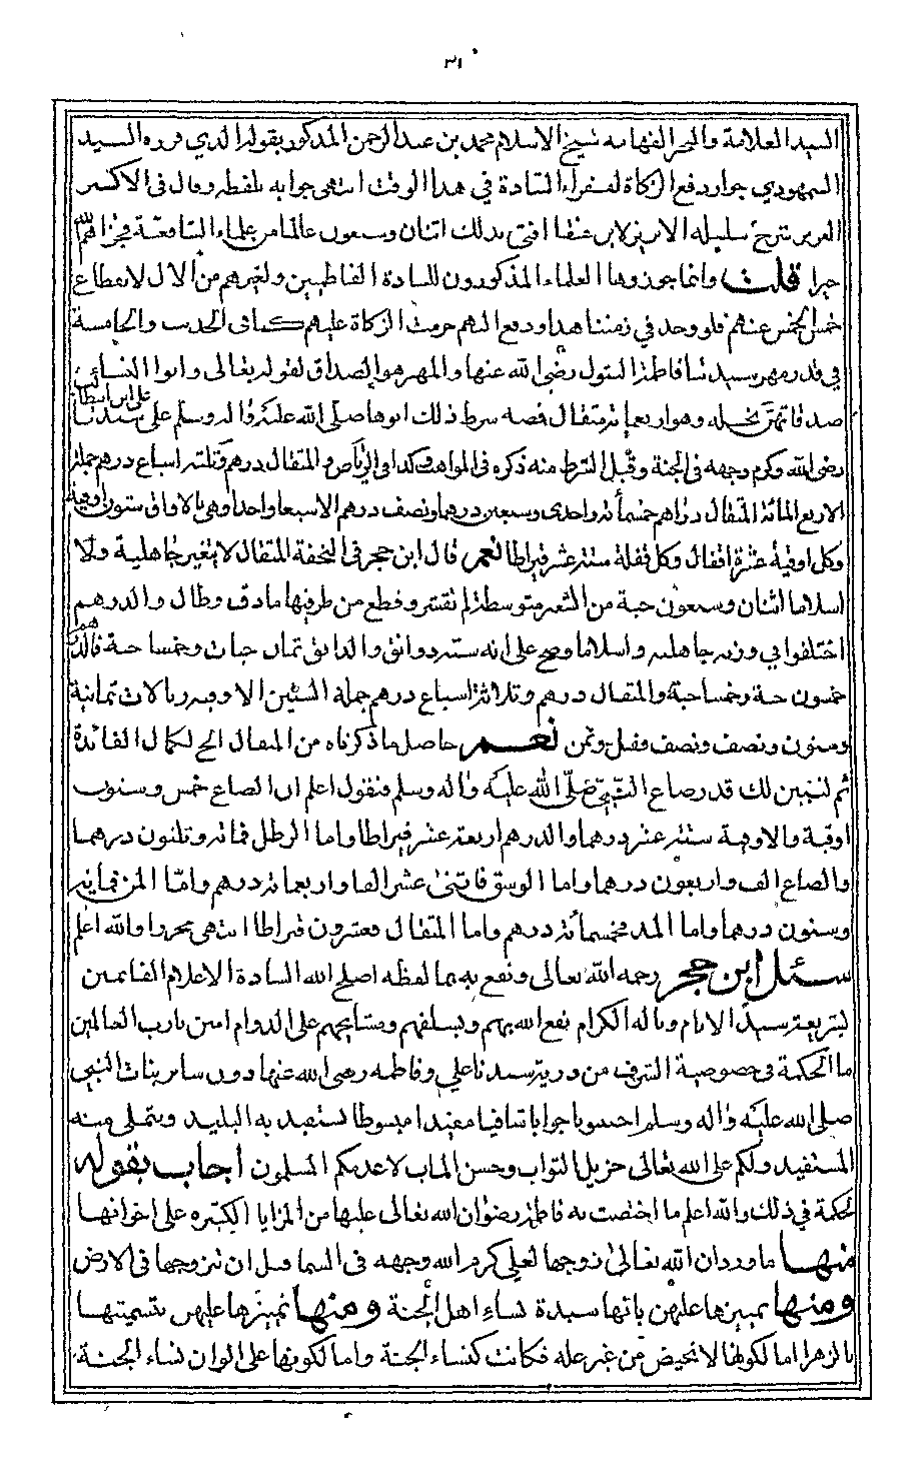 ٣١
السيد العلامة والبحر الفهامه شيخ الاسلام محمد بن عبد الرحمن المذكور بقوله الذي قرره السيد
السمهودي جواز دفع الزكاة لفقراء السادة في هذا الوقت انتهى جوابه بلفظه وقال في الاكسير
العزيز شرح سلسلة الابريز لابن عنقا افتى بذلك اثنان وسبعون عالما من علماء الشافعية فجزاهم الله
خيرا قلت وانما جوزوها العلماء المذكورون للسادة الفاطميين ولغيرهم من الال لانقطاع
خمس الخمس عنهم فلو وجد في زمننا هذا ودفع اليهم حرمت الزكاة عليهم كما في الحديث والخامسة
في قدر مهر سيدتنا فاطمة البتول رضي الله عنها والمهر هو الصداق لقوله تعالى واتوا النساء
صدقاتهن نحله وهو اربعماية مثقال فضه شرط ذلك ابوها صلى الله عليه واله وسلم على سيدنا علي ابن ابي طالب
رضي الله وكرم وجهه في الجنة وقبل الشرط منه ذكره في المواهب كذا في الرياض والمثقال درهم وثلثة اسباع درهم جملة
الاربع المائة المثقال دراهم خمسمائة واحدى وسبعين درهما ونصف درهم الا سبعا واحدا وهي بالاواق ستون اوقية
وكل اوقية عشرة اقفال وكل قفلة ستة عشر قيراطا نعم قال ابن حجر في التحفة المثقال لا يتغير جاهلية ولا
اسلاما اثنان وسبعون حبة من الشعير متوسطة لم تقشر وقطع من طرفيها ما دق وطال والدرهم
اختلفوا في وزنه جاهليه واسلاما وصح على انه ستة دوانق والدانق ثمان حبات وخمسا حبة فالدرهم
خمسون حبة وخمسا حبة والمثقال درهم وثلاثة اسباع درهم جملة الستين الاوقيه ريالات ثمانية
وستون ونصف ونصف وقفل وثمن نعم حاصل ما ذكرناه من المقال الخ لكمال الفائدة
ثم لنبين لك قدر صاع النبي صلى الله عليه واله وسلم فنقول اعلم ان الصاع خمس وستون
اوقية والاوقية ستة عشر درهما والدرهم اربعة عشر قيراطا واما الرطل فمائه وثلثون درهما
والصاع الف واربعون درهما واما الوسق فاثنى عشر الفا واربعمائة درهم وامّا المن فمايتين
وستون درهما واما المد فخمسمائة درهم واما المثقال فعشرون قيراطا انتهى محررا والله اعلم
سئل ابن حجر رحمه الله تعالى ونفع به بما لفظه اصلح الله السادة الاعلام القائمين
بشريعة سيد الانام واله الكرام نفع الله بهم وبسلفهم ومشايخهم على الدوام امين يارب العالمين
ما الحكمة في خصوصية الشرف من ذرية سيدنا علي وفاطمه رضي الله عنها دون سائر بنات النبي
صلى الله عليه واله وسلم احسنوا جوابا شافيا مفيدا مبسوطا يستفيد به البليد ويتملى منه
المستفيد ولكم على الله تعالى جزيل الثواب وحسن الماب لا عدمكم المسلمون اجاب بقوله
لحكمة في ذلك والله اعلم ما اختصت به فاطمة رضوان الله تعالى عليها من المزايا الكثيره على اخواتها
منها ما ورد ان الله تعالى زوجها لعلي كرم الله وجهه في السما قبل ان تزوجها في الارض
ومنها تميزها عليهن بانها سيدة نساء اهل الجنة ومنها تميزها عليهن بتسميتها
بالزهرا اما لكونها لا تحيض من غير عله فكانت كنساء الجنة واما لكونها على الوان نساء الجنة،